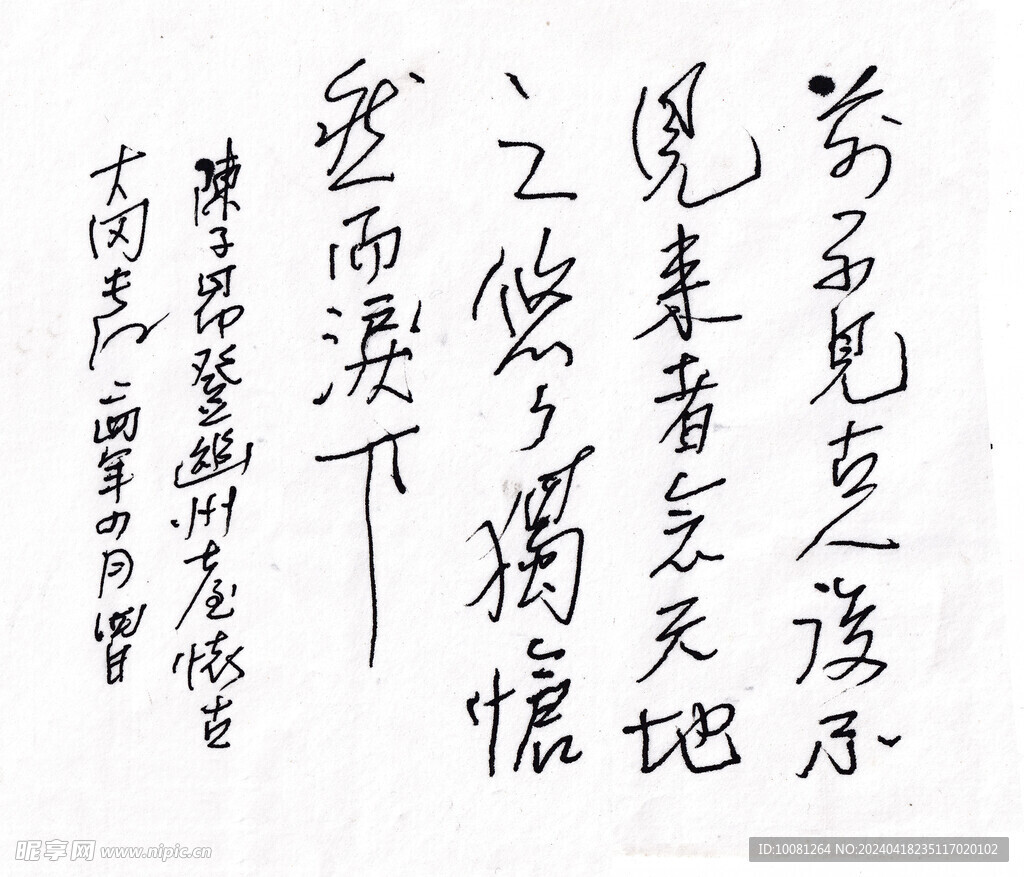 前不見古人後不
見來者念天地
之悠々獨愴
然而淚下
陳子昂登幽州臺懷古
二四年四月
昵享网 www.nipic.cn
ID:10081264 NO:20240418235117020102